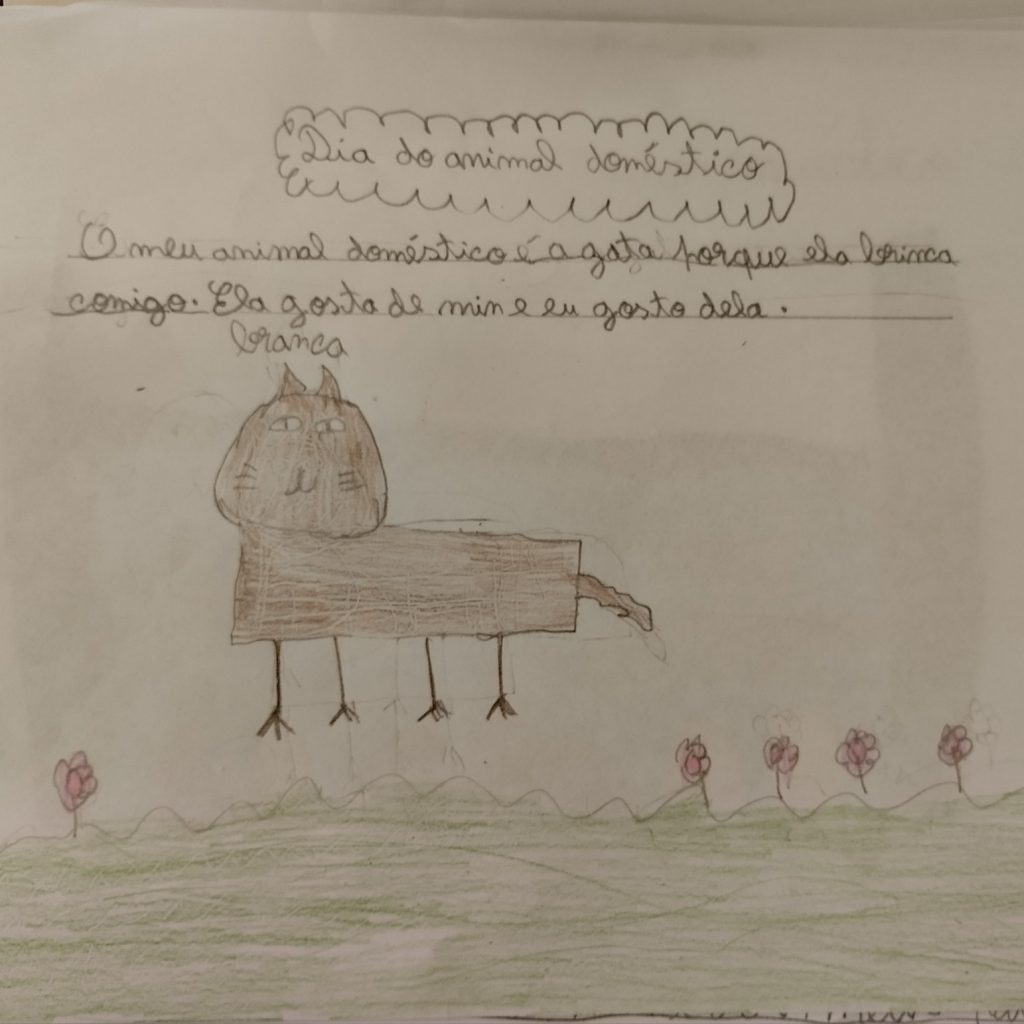 Dia do animal doméstico
O meu animal doméstico é a gata porque ela brinca
comigo. Ela gosta de min e eu gosto dela.
branca